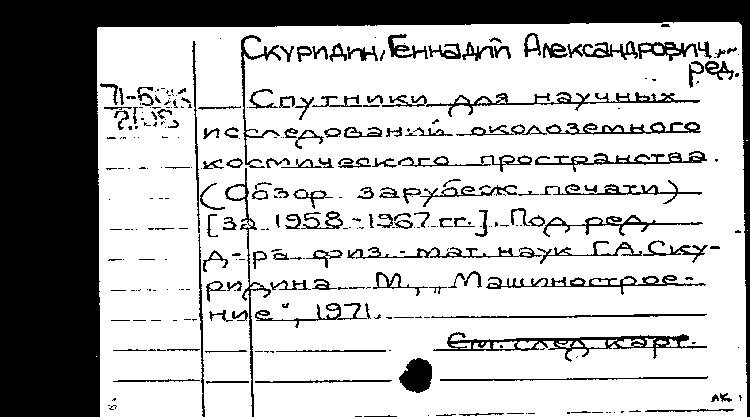 Скуридин, Геннадий Александрович,
ред.
Спутники для научных
исследований околоземного
космического пространства.
(Обзор зарубеж. печати)
[за 1958-1967 гг.]. Под ред.
д-ра физ.-мат. наук Г.А. Ску-
ридина. М., „Машинострое-
ние", 1971.
См. след. карт.